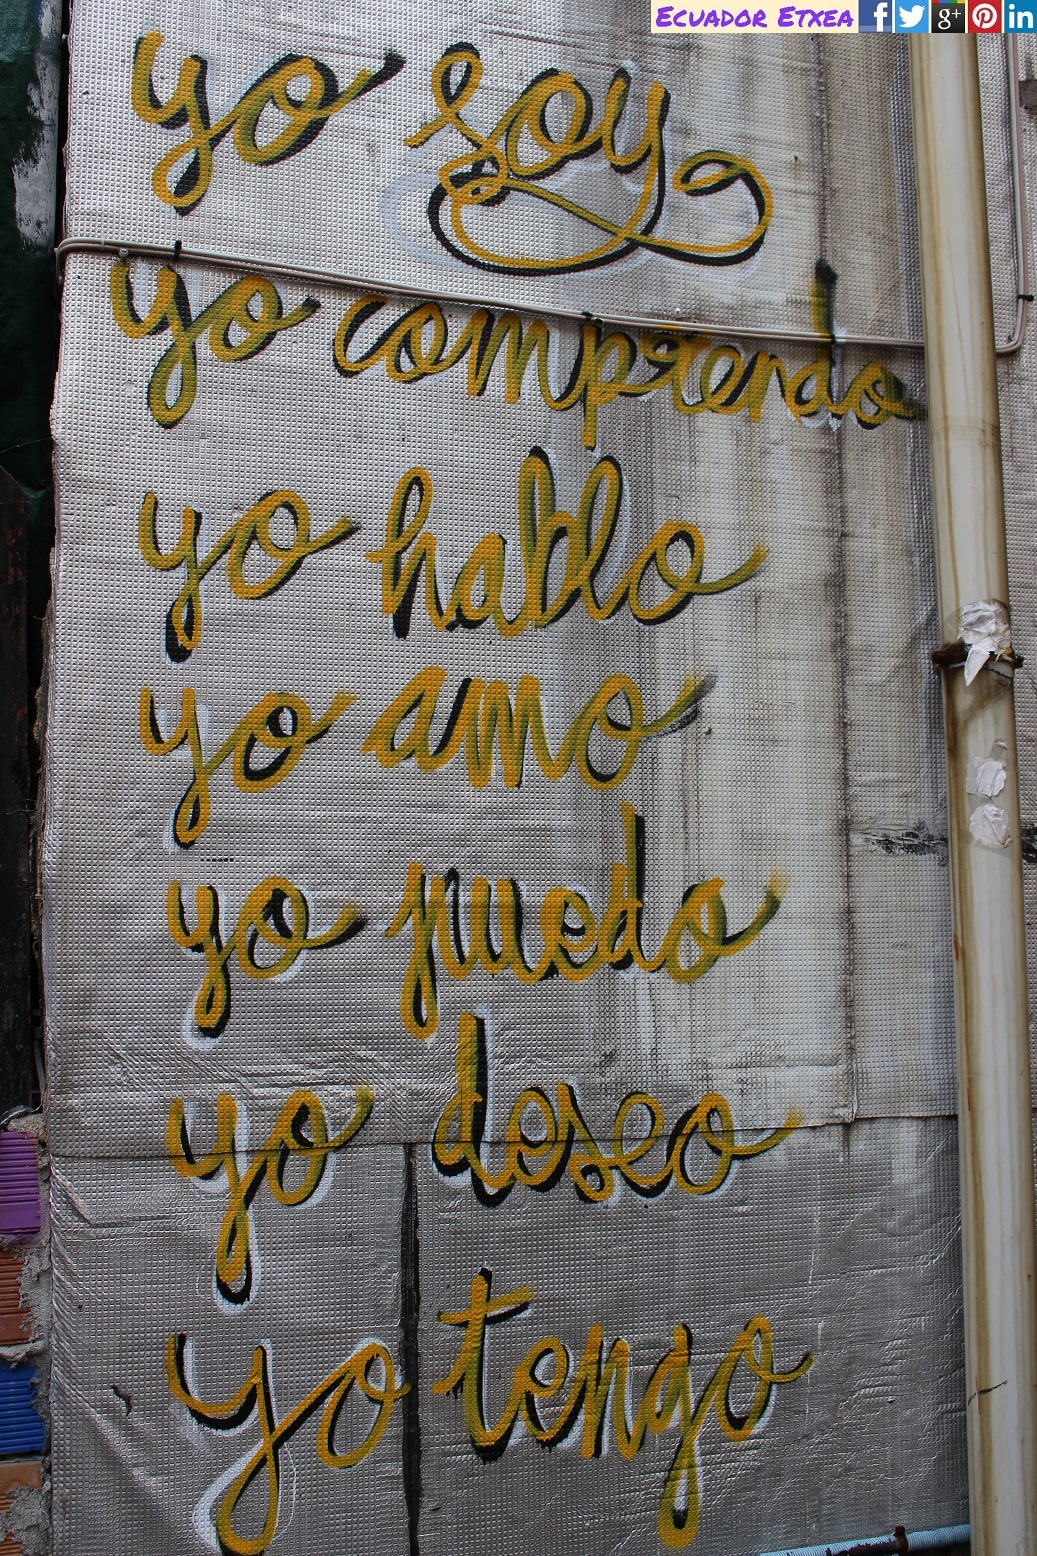 Ecuador Etxea f g+ in
yo soy
yo comprendo
yo hablo
yo amo
yo puedo
yo deseo
yo tengo